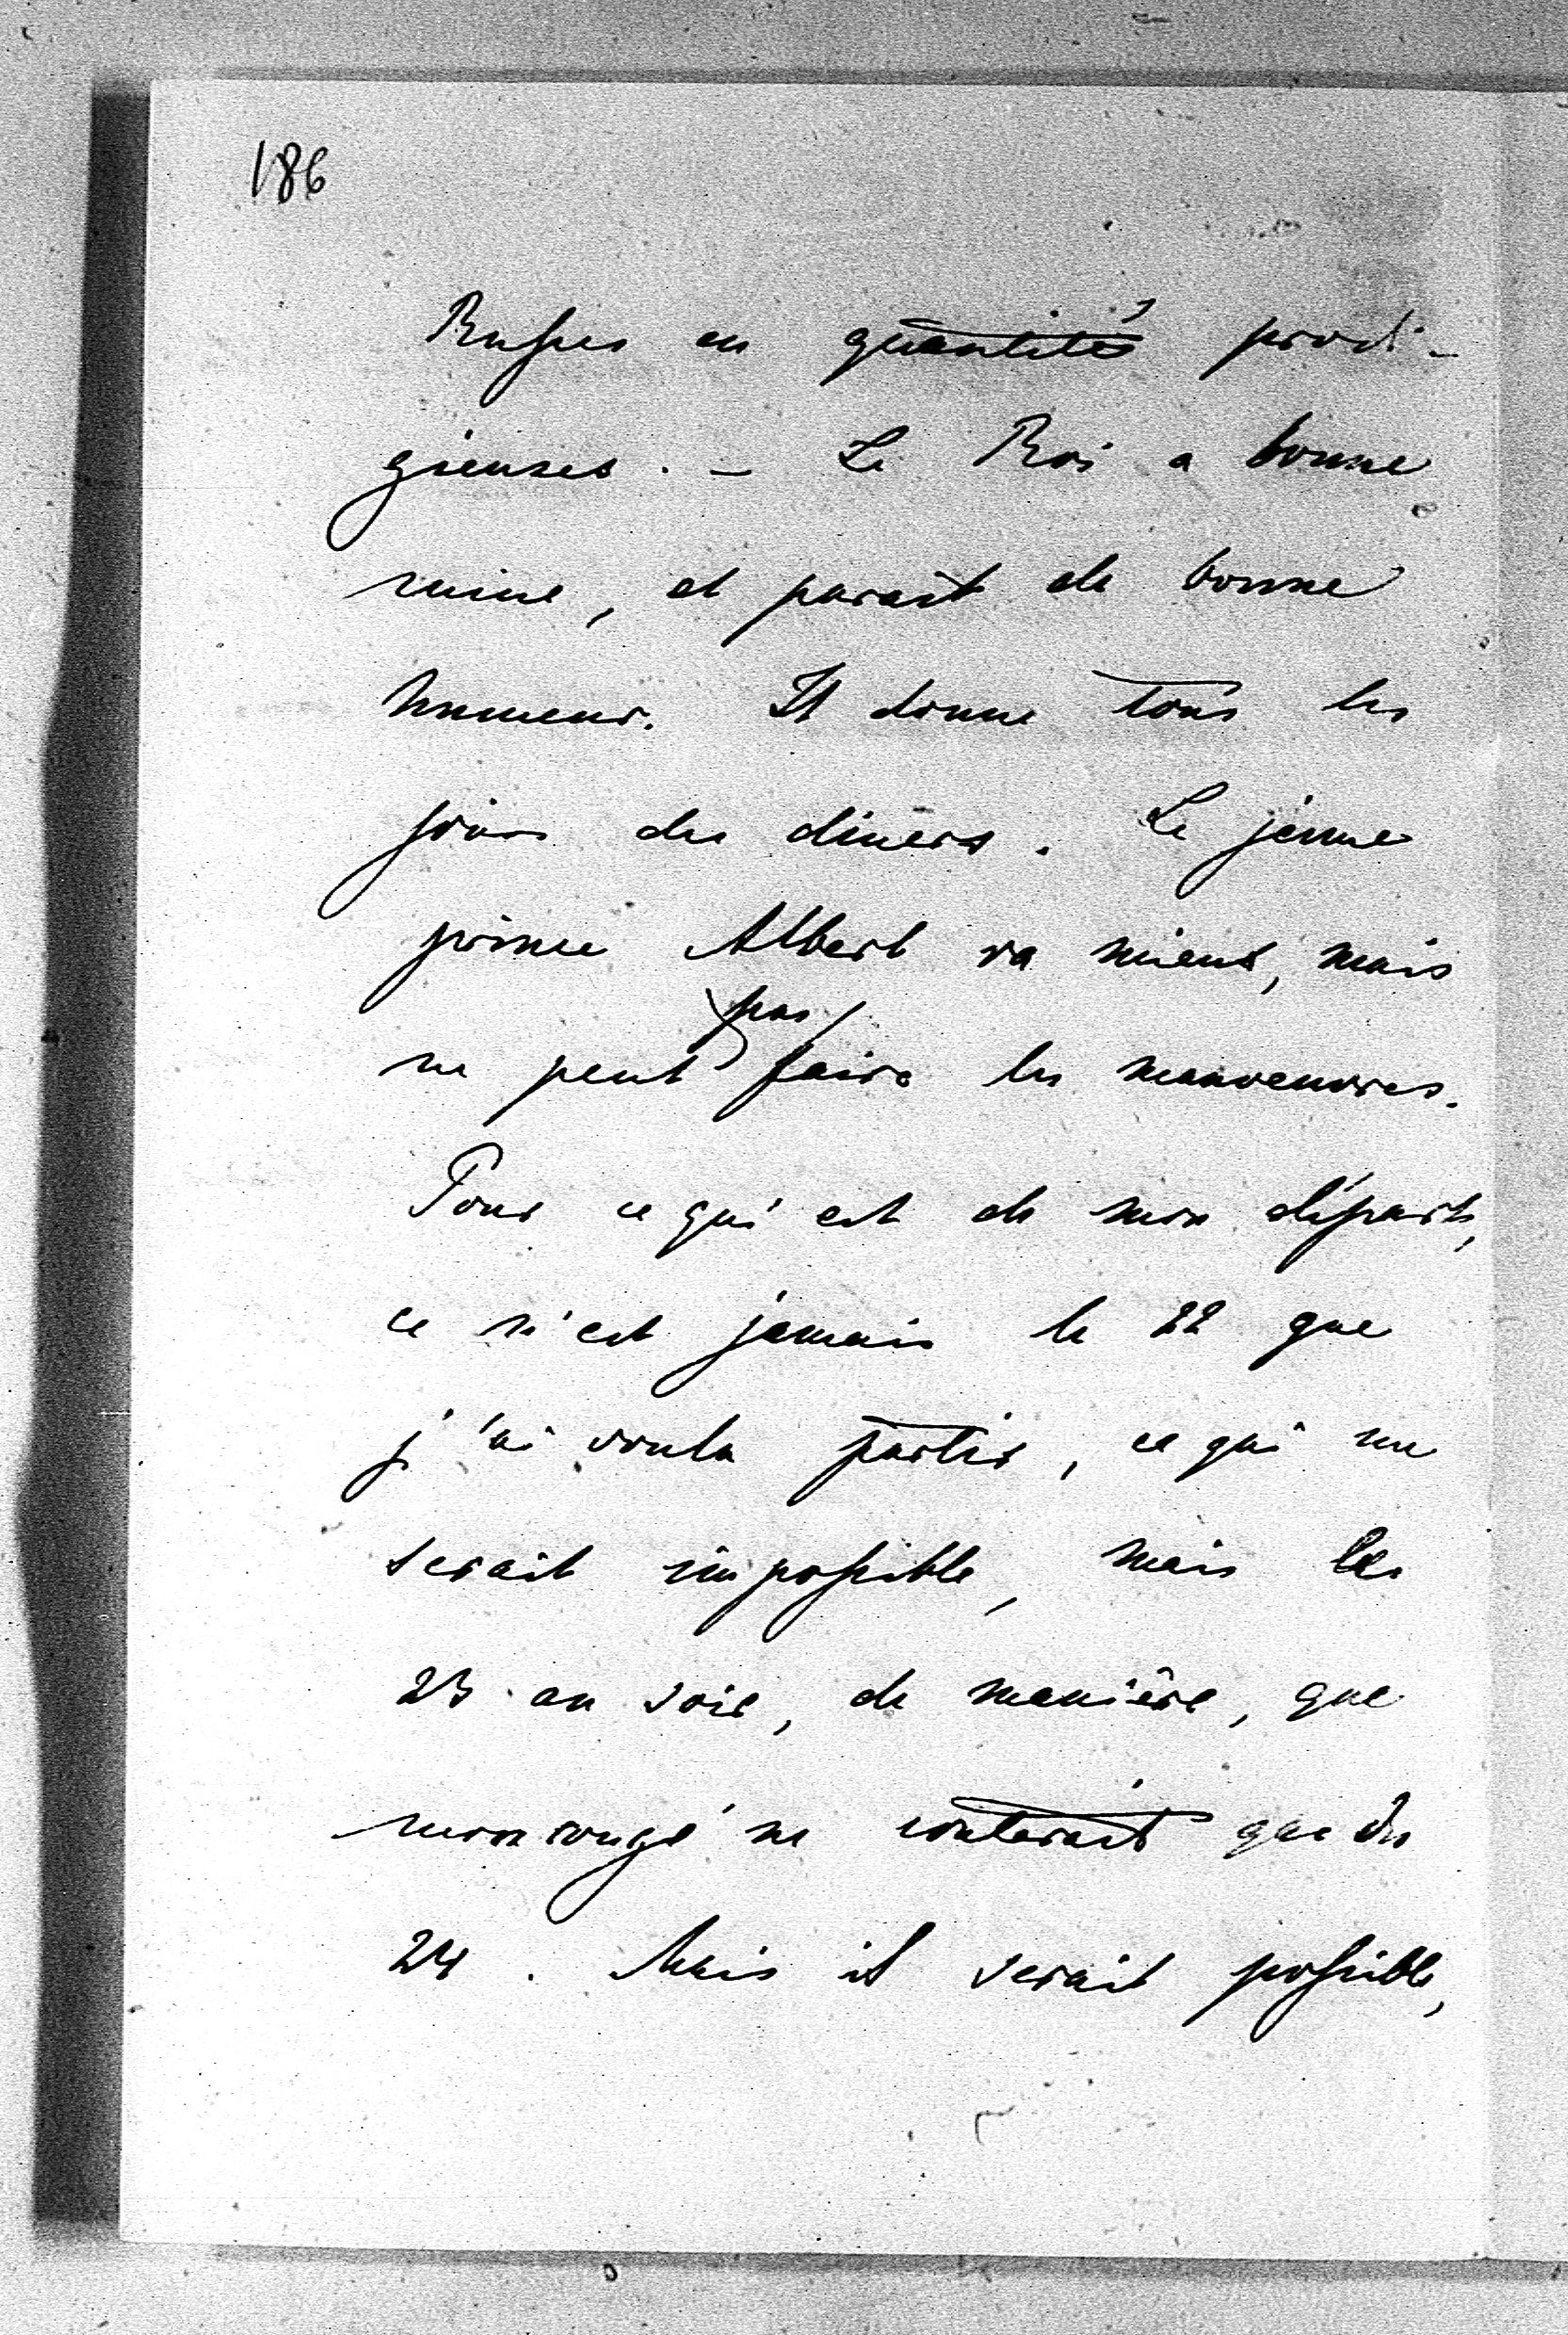 186
Russes en quantités prodi-
gieuses. – Le Roi a bonne
mine, et parait de bonne
humeur. Il donne tous les
jours des diners. Le jeune
prince Albert va mieux, mais
pas
ne peut faire les manoeuvres.
Pour ce qui est de mon départ,
ce n'est jamais le 22 que
j'ai voulu partir, ce qui me
serait impossible, mais le
23 au soir, de manière, que
mon congé ne conterait que du
24. Mais il serait possible,